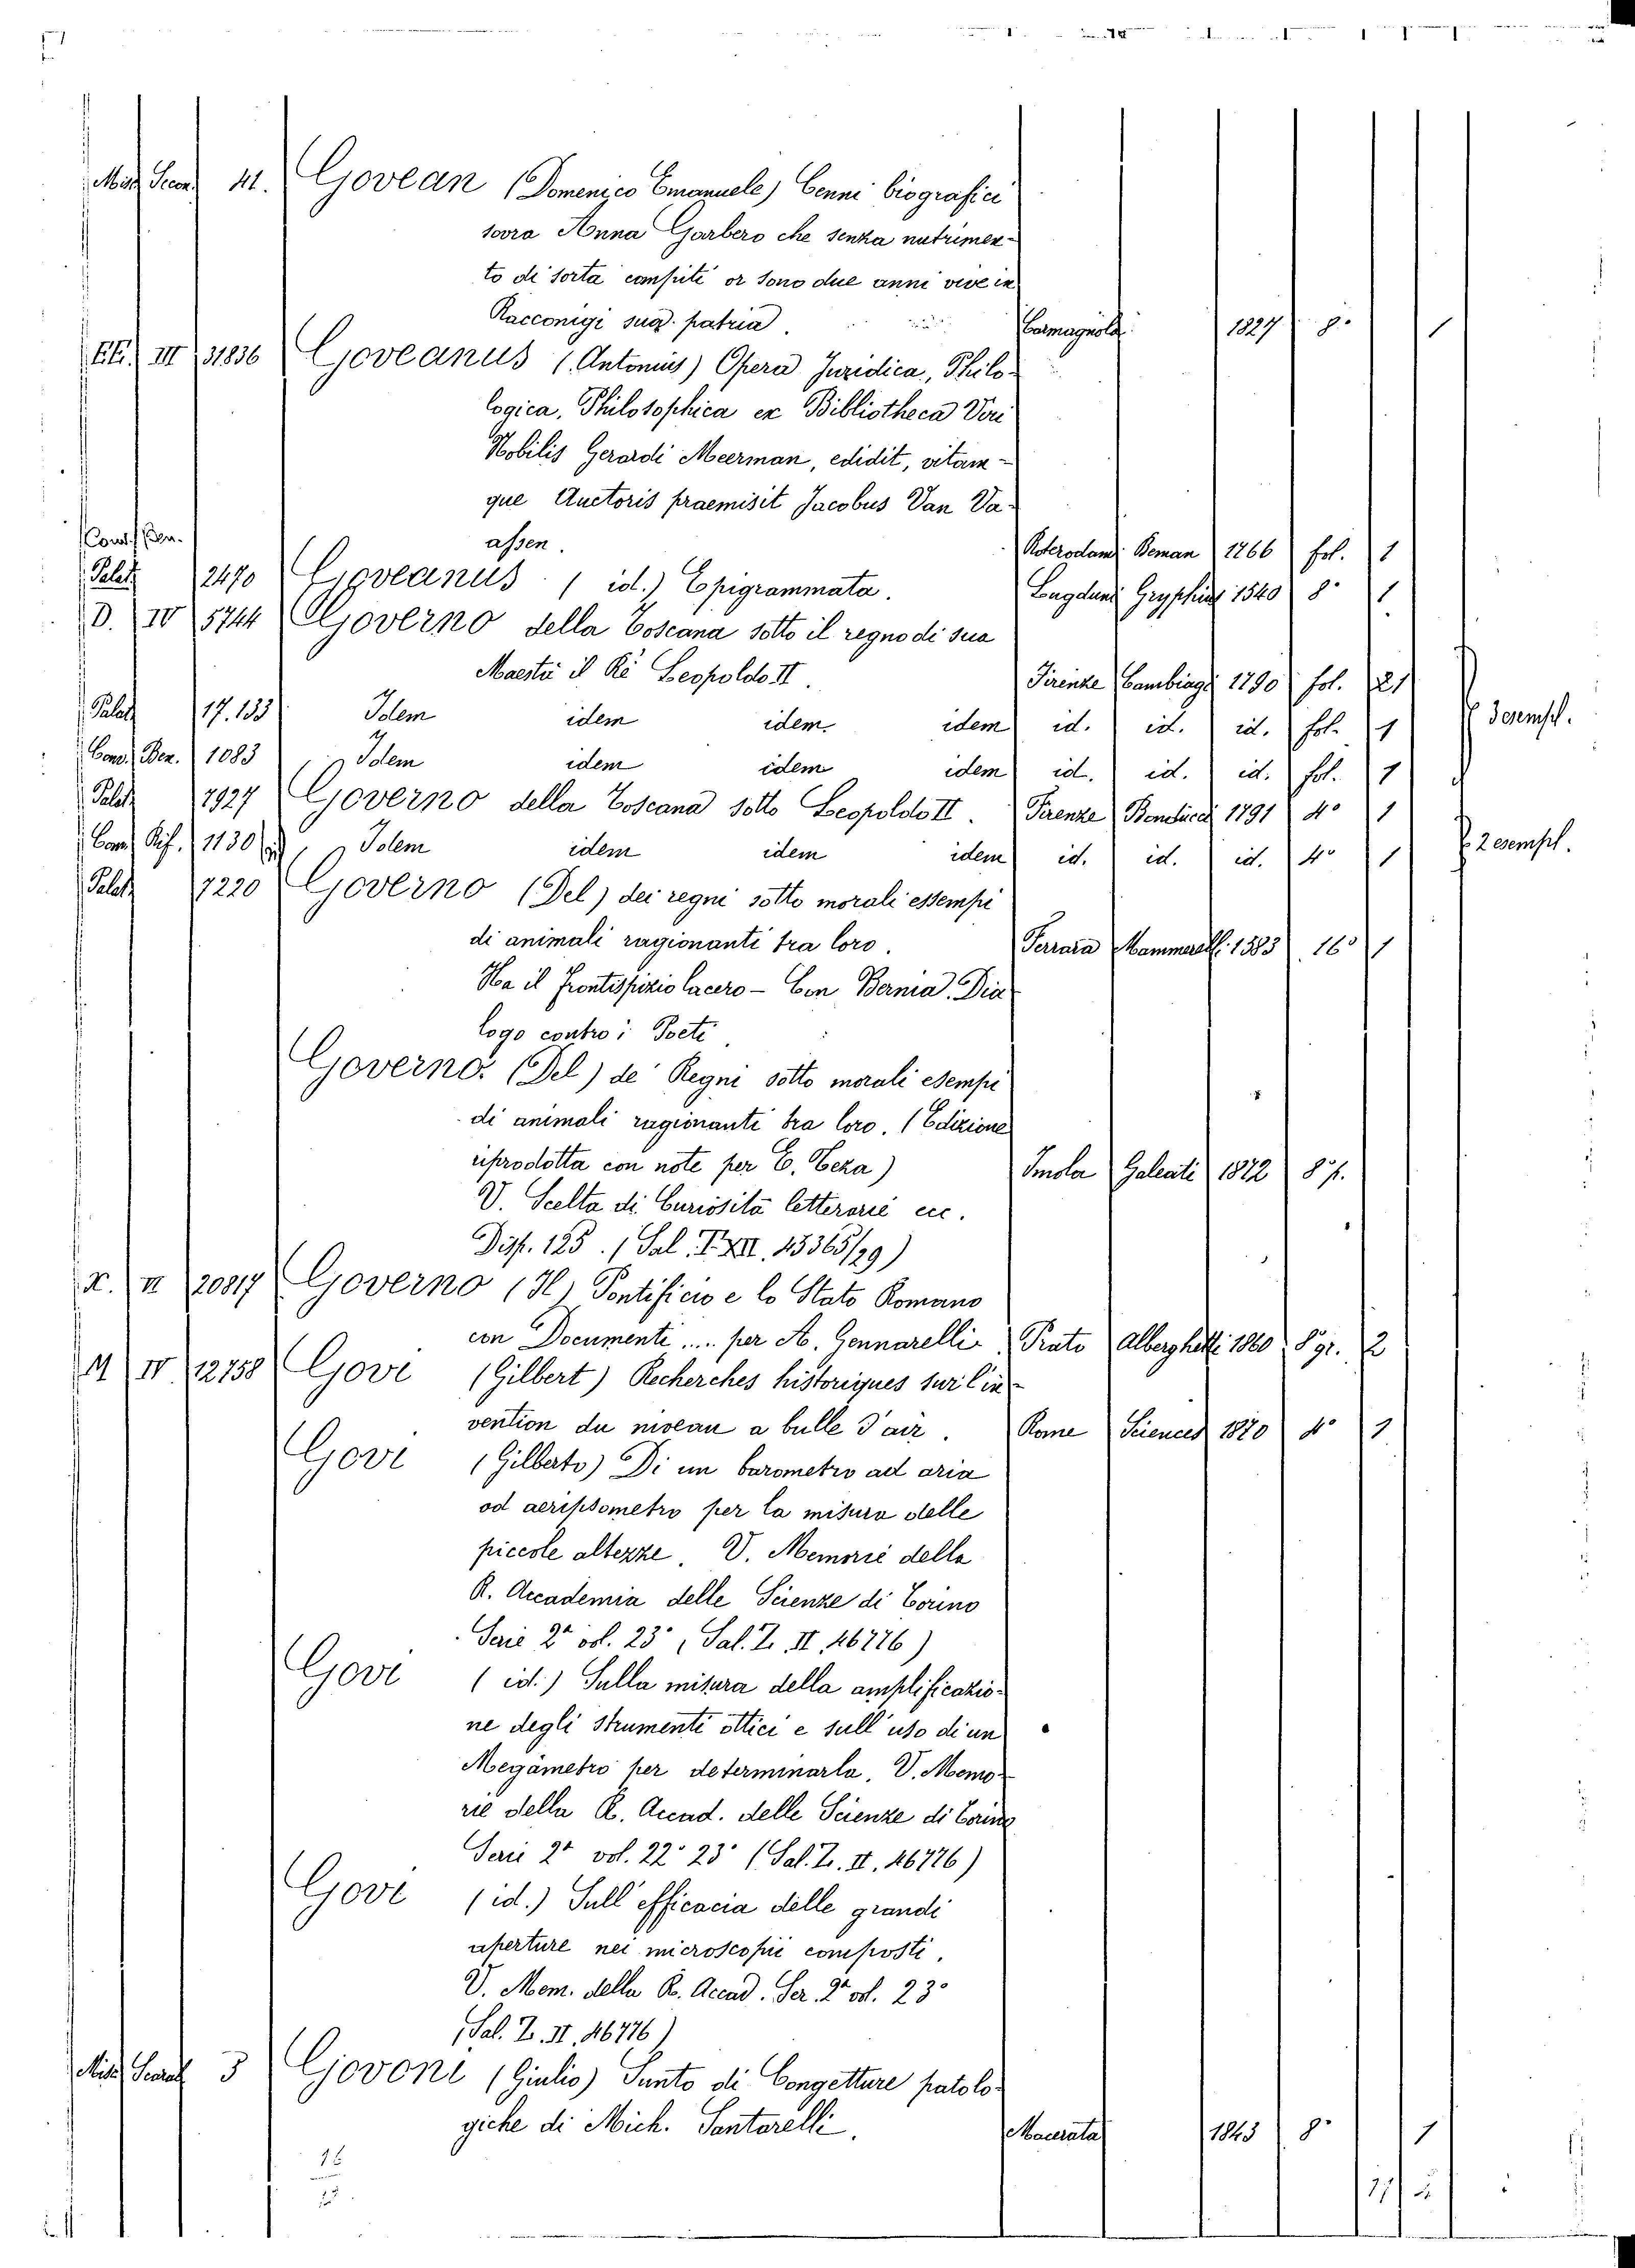 41. Govean (Domenico Emanuele) Cenni biografici
sovra Anna Garbero che senza nutrimen-
to di sorta compiti or sono due anni vive in
Racconigi sua patria. Carmagnola 1827 8° 1
III 31836 Goveanus (Antonius) Opera Juridica, Philo-
logica, Philosophica ex Bibliotheca Viri
Nobilis Gerardi Meerman, edidit, vitam-
que Auctoris praemisit Jacobus Van Va-
assen. Roterodami Beman 1766 fol. 1
Palat. 2470 Goveanus (id.) Epigrammata. Lugduni Gryphius 1540 8° 1
D. IV 5744 Governo della Toscana sotto il regno di sua
Maestà il Rè Leopoldo II. Firenze Cambiagi 1790 fol. 21
Palat. 17.133 Idem idem idem idem id. id. id. fol. 1 3 esempl.
Conv. Ben. 1083 Idem idem idem idem id. id. id. fol. 1
Palat. 7927 Governo della Toscana sotto Leopoldo II. Firenze Bonducci 1791 4° 1
Conv. Rif. 1130 Idem idem idem idem id. id. id. 4° 1 2 esempl.
Palat. 7220 Governo (Del) dei regni sotto morali essempi
di animali ragionanti tra loro. Ferrara Mammarelli 1583 16° 1
Ha il frontispizio lacero - Con Bernia. Dia
logo contro i Poeti
Governo. (Del) de' Regni sotto morali esempi
di animali ragionanti tra loro. (Edizione
riprodotta con note per E. Teza) Imola Galeati 1872 8° p.
V. Scelta di Curiosità letterarie ecc.
Disp. 125. (Sal. T. XII. 45365/29)
X. VI 20817 Governo (Il) Pontificio e lo Stato Romano
con Documenti .... per A. Gennarelli Prato Alberghetti 1860 8° gr. 2
M IV 12758 Govi (Gilbert) Recherches historiques sur l'in-
vention du niveau a bulle d'air. Rome Sciences 1870 4° 1
Govi (Gilberto) Di un barometro ad aria
od aeripsometro per la misura delle
piccole altezze. V. Memorie della
R. Accademia delle Scienze di Torino
Serie 2ª vol. 23° (Sal. Z. II. 46776)
Govi (id.) Sulla misura della amplificazio-
ne degli strumenti ottici e sull'uso di un
Megàmetro per determinarla. V. Memo-
rie della R. Accad. delle Scienze di Torino
Serie 2ª vol. 22° 23° (Sal. Z. II. 46776)
Govi (id.) Sull'efficacia delle grandi
aperture nei microscopii composti.
V. Mem. della R. Accad. Ser. 2ª vol. 23°
(Sal. Z. II. 46776)
3 Govoni (Giulio) Sunto di Congetture patolo-
giche di Mich. Santarelli. Macerata 1843 8° 1